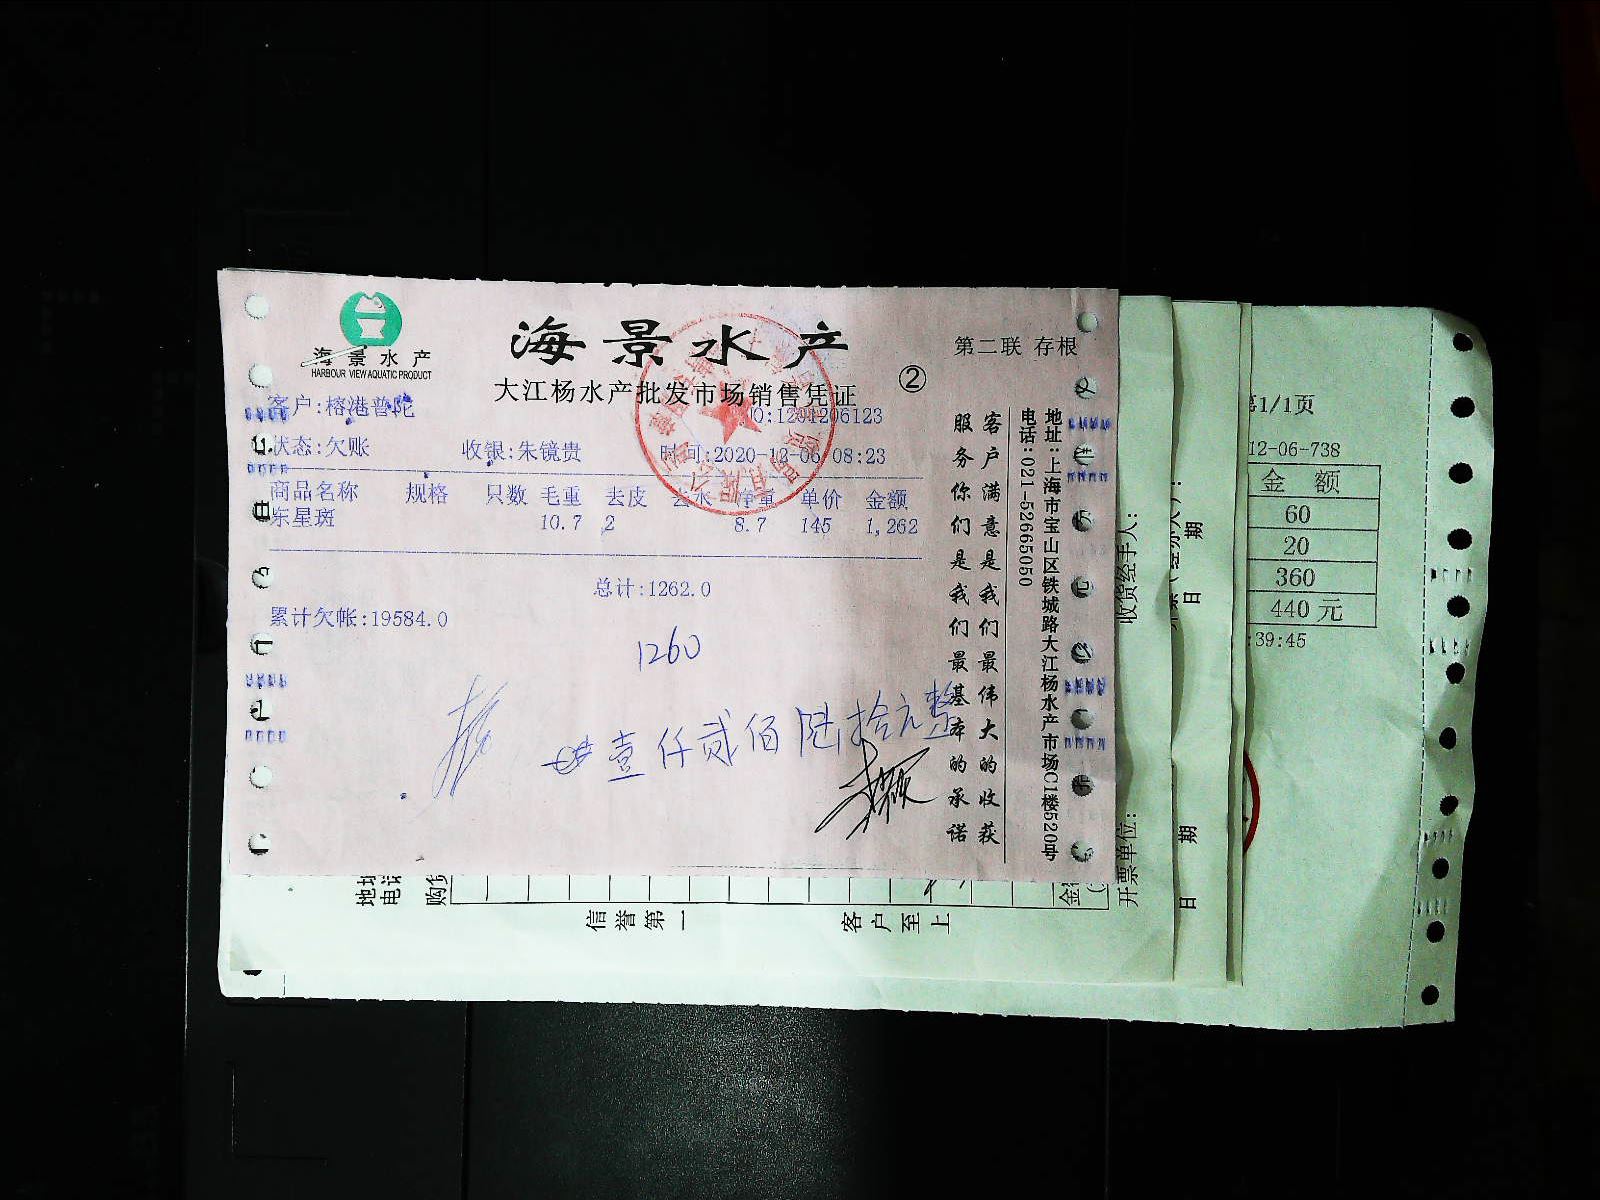 海景水产
HARBOUR VIEW AQUATIC PRODUCT
海景水产
大江杨水产批发市场销售凭证
②
第二联 存根
客户:榕港普陀
NO:1201206123
状态:欠账 收银:朱镜贵 时间:2020-12-06 08:23
商品名称 规格 只数 毛重 去皮 去水 净重 单价 金额
东星斑 10.7 2 8.7 145 1,262
总计:1262.0
累计欠帐:19584.0
1260
壹仟贰佰陆拾元整
客户满意是我们最伟大的收获
服务你们是我们最基本的承诺
地址:上海市宝山区铁城路大江杨水产市场C1楼520号
电话:021-52665050
收货经手人:
开票单位:
日期
日期
地址
电话
购货
信誉第一
客户至上
第1/1页
12-06-738
金额
60
20
360
440元
:39:45